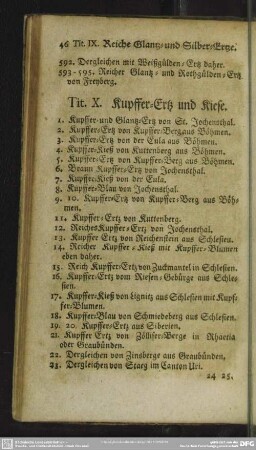 46 Tit. IX. Reiche Glantz- und Silber-Ertze.
592. Dergleichen mit Weißgülden-Ertz daher.
593-595. Reicher Glantz- und Rothgülden-Ertz
von Freyberg.
Tit. X. Kupffer-Ertz und Kiese.
1. Kupffer-und Glantz-Ertz von St. Jochensthal.
2. Kupffer-Ertz von Kupffer-Berg aus Böhmen.
3. Kupffer-Ertz von der Eula aus Böhmen.
4. Kupffer-Kieß von Kuttenberg aus Böhmen.
5. Kupffer-Ertz von Kupffer-Berg aus Böhmen.
6. Braun Kupffer-Ertz von Jochensthal.
7. Kupffer-Kieß von der Eula.
8. Kupffer-Blau von Jochensthal.
9. 10. Kupffer-Ertz von Kupffer-Berg aus Böh-
men.
11. Kupffer-Ertz von Kuttenberg.
12. Reiches Kupffer-Ertz von Jochensthal.
13. Kupffer Ertz von Reichenstein aus Schlesien.
14. Reicher Kupffer-Kieß mit Kupffer-Blumen
eben daher.
15. Reich Kupffer-Ertz von Zuckmantel in Schlesien.
16. Kupffer-Ertz vom Riesen-Gebürge aus Schle-
sien.
17. Kupffer-Kieß von Lignitz aus Schlesien mit Kupf-
fer-Blumen.
18. Kupffer-Blau von Schmiedeberg aus Schlesien.
19. 20. Kupffer-Ertz aus Siberien.
21. Kupffer Ertz von Zöllifer-Berge in Rhaetia
oder Graubünden.
22. Dergleichen von Zinsberge aus Graubünden.
23. Dergleichen von Staeg im Canton Uri.
24 25.